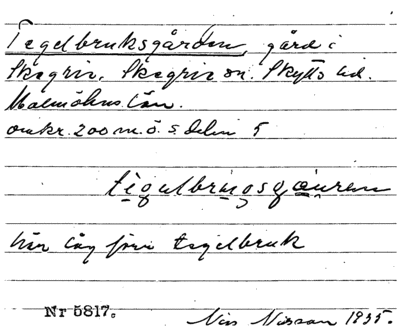 Tegelbruksgården, gård i
Skegrie, Skegrie sn. Skytts hd.
Malmöhus län.
omkr. 200 m. ö. s. delen 5
tegulbrugsgæuren
här låg förr tegelbruk
Nr 5817.
Nils Nilsson 1935.